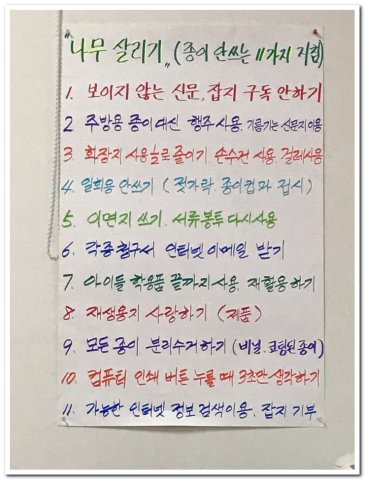 "나무 살리기" (종이 안쓰는 11가지 지침)
1. 보이지 않는 신문, 잡지 구독 안하기
2 주방용 종이대신 행주사용. 기름기는 신문지이용
3 화장지 사용 줄이기. 손수건 사용. 걸레사용
4 일회용 안쓰기 (젓가락 종이컵과 접시)
5 이면지 쓰기. 서류봉투 다시사용
6. 각종청구서 인터넷 이메일 받기
7 아이들 학용품 끝까지사용 재활용하기
8 재생용지 사랑하기 (제품)
9. 모든 종이 분리수거하기 (비닐.코팅된종이)
10. 컴퓨터 인쇄 버튼 누를때 3초만 생각하기
11. 가능한 인터넷 정보검색이용. 잡지 기부